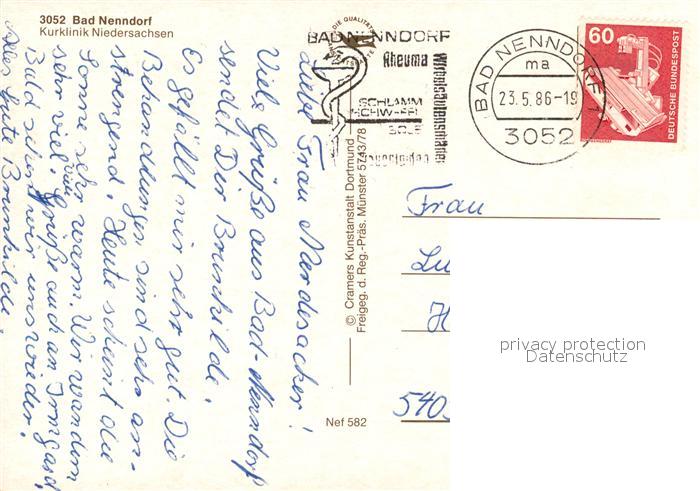 3052 Bad Nenndorf
Kurklinik Niedersachsen
Liebe Frau Nerdesacker!
Viele Grüße aus Bad-Nenndorf
sendet Dir Brunhilde.
Es gefällt mir sehr gut. Die
Behandlungen sind sehr an-
strengend. Heute scheint die
Sonne sehr warm. Wir wandern
sehr viel. Viele Grüße auch an Irmgard
Bald sehen wir uns wieder.
Alles Gute Brunhilde.
© Cramers Kunstanstalt Dortmund
Freigeg. d. Reg.-Präs. Münster 5743/78
Nef 582
DIE QUALITÄT
BAD NENNDORF
Rheuma
Wirbelsäulensmäler
SCHLAMM
SCHWEFEL
SOLE
BAD NENNDORF
ma
23.5.86-19
3052
60
DEUTSCHE BUNDESPOST
Frau
Lu
H
540
privacy protection
Datenschutz